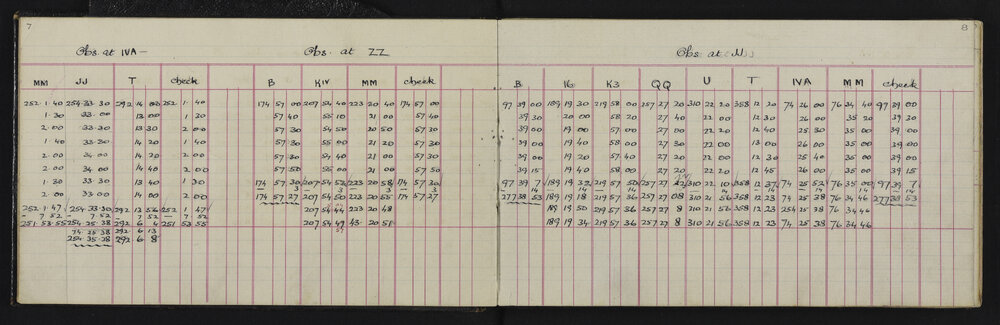 7
Obs. at IVA —
MM JJ T check
252·1·40 254·33·30 292 14 00 252 1 40
1·30 33·00 13 00 1 30
2·00 33·00 13 30 2 00
1·40 33·30 14 20 1 40
2 00 34·00 14 20 2 00
2 00 34·00 14 40 2 00
1·30 33·30 13 40 1 30
2 00 33·00 14 00 2 00
252·1·47 254·33·30 292 12 56 252 1 47
- 7 52 - 7·52 7 52 - 7 52
251·53·55 254·25·38 292 6 4 251 53 55
74·25·38 292 6 13
254·35·38 292 6 8
Obs. at ZZ
B KIV MM check
174 57 00 207 54 40 223 20 40 174 57 00
57 40 55 10 21 00 57 40
57 30 54 50 20 50 57 30
57 30 54 40 21 20 57 30
57 30 54 40 21 00 57 30
57 50 55 00 21 00
174 57 30 207 54 52 223 20 58 174 57 30
- 3 3 3 - 3
174 57 27 207 54 50 223 20 55 174 57 27
207 54 44 223 20 48
207 54 49 43 20 51
8
Obs. at JJ
B 16 K3 QQ U T IVA MM check
97 39 00 189 19 30 219 58 00 257 27 20 310 22 20 358 12 20 74 26 00 76 34 40 97 39 00
39 30 20 00 58 20 27 40 22 00 12 30 26 00 35 20 39 30
39 00 19 00 57 00 27 00 22 20 12 40 25 30 35 00 39 00
39 00 19 40 58 20 27 00 22 00 13 00 26 00 35 00 39 00
39 00 19 20 57 40 27 20 22 20 12 30 25 40 35 00 39 00
39 15 19 40 58 00 27 20 22 00 12 45 26 00 35 00 39 15
97 39 7 189 19 32 219 57 50 257 27 310 22 10 358 12 37 74 25 52 76 35 00 97 39 7
14 14 14 14 14 14 14
277 38 53 189 19 18 219 57 36 257 27 08 310 21 56 358 12 23 74 25 38 76 34 46 277 38 53
189 19 50 219 57 36 257 27 8 310 21 56 358 12 23 254 25 38 76 34 46
189 19 34 219 57 36 257 27 8 310 21 56 358 12 23 74 25 38 76 34 46